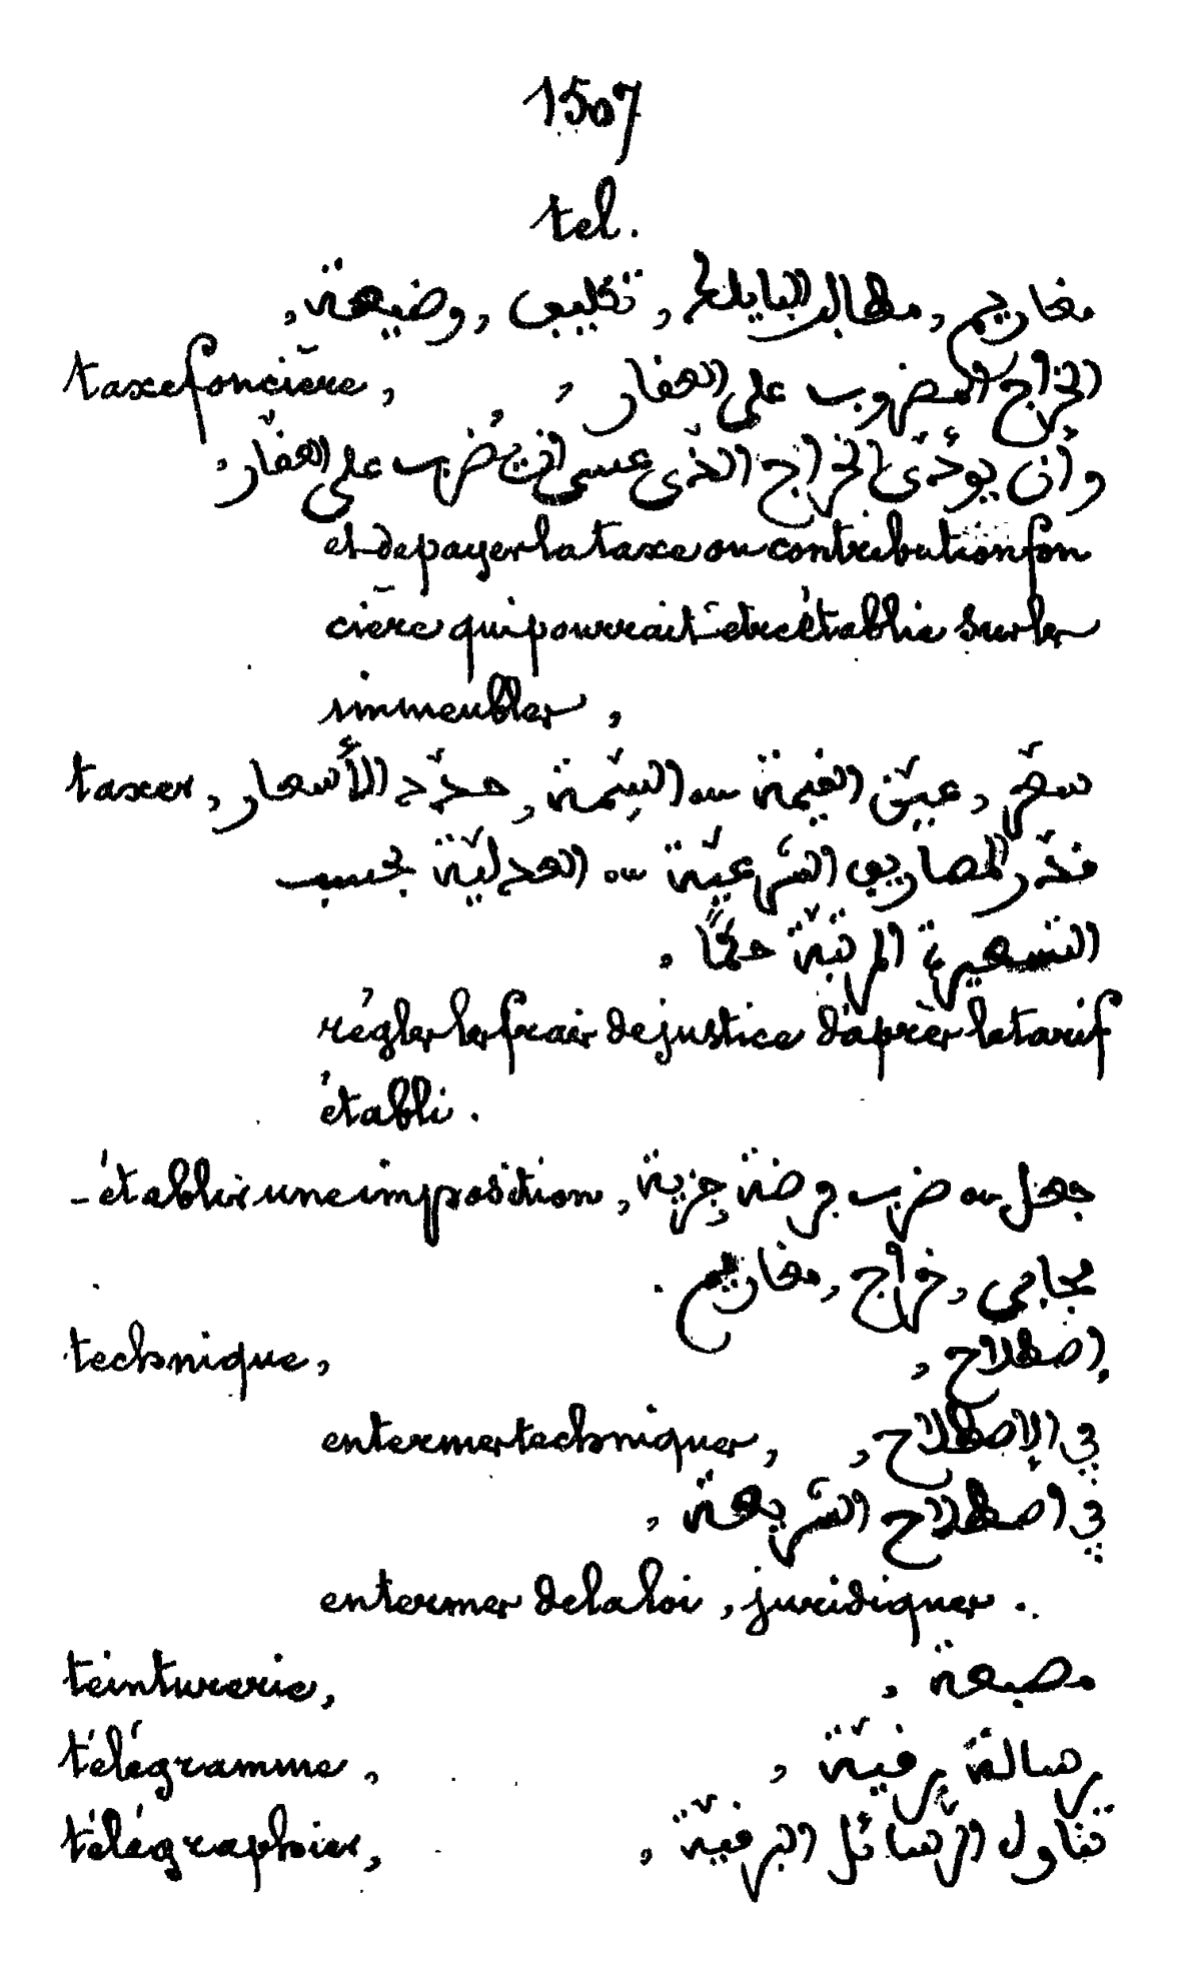 1507
tel.
مغاريم, مطالب البايلك, تكليف, وضيعة,
taxe foncière, الخراج المضروب على العقار,
وأن يودّى الخراج الذّى عسى ان يُضرب على العقّار,
et de payer la taxe ou contribution fon
cière qui pourrait être établie sur les
immeubles,
taxer, سعّر, عيّن القيمة ou السّيمة, حدّد الأسعار,
قدّر المصاريف الشّرعيّة ou العدليّة بحسب
التسعيرة المرتّبة حكمًا,
régler les frais de justice d'après le tarif
établi.
- établir une imposition, جعل ou ضرب فرضة جزية,
مجابي, خراج, مغاريم.
technique, إصطلاح,
en termes techniques, في الإصطلاح,
في اصطلاح الشّريعة,
en termes de la loi, juridiques.
teinturerie, مصبغة,
télégramme, رسالة برقيّة,
télégraphier, تناول الرّسائل البرقيّة,